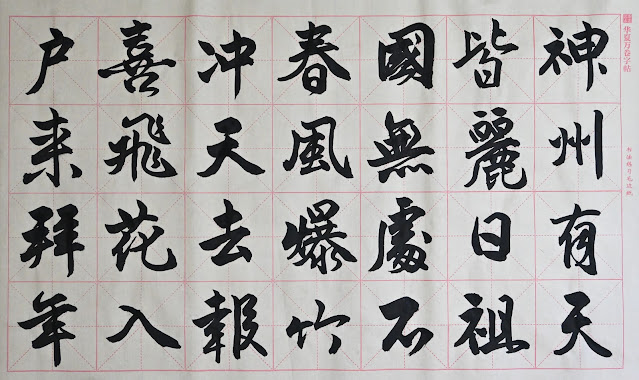 华夏万卷字帖
神州有天
皆麗日祖
國無處不
春風爆竹
冲天去報
喜飛花入
户来拜年